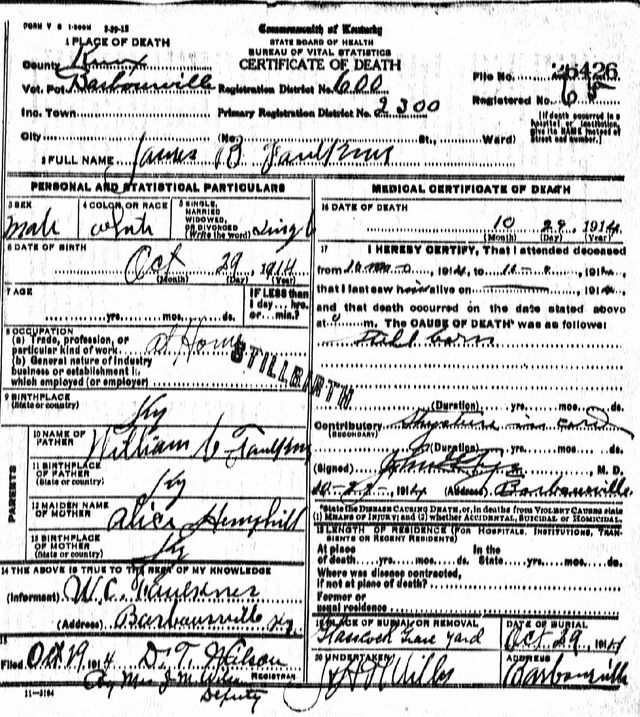 FORM V S 1-500M 3-29-13
Commonwealth of Kentucky
STATE BOARD OF HEALTH
BUREAU OF VITAL STATISTICS
CERTIFICATE OF DEATH
1 PLACE OF DEATH
County Knox
Vot. Pct. Barbourville Registration District No. 600
File No. 26426
Inc. Town Primary Registration District No. 2300
Registered No. 65
City (No. St., Ward)
[If death occurred in a hospital or institution, give its NAME instead of street and number.]
2 FULL NAME James B Faulkner
PERSONAL AND STATISTICAL PARTICULARS
3 SEX
Male
4 COLOR OR RACE
White
5 SINGLE, MARRIED WIDOWED, OR DIVORCED
(Write the word) Single
6 DATE OF BIRTH
Oct 29, 1914
(Month) (Day) (Year)
7 AGE
yrs. mos. ds.
IF LESS than 1 day... hrs. or... min.?
8 OCCUPATION
(a) Trade, profession, or particular kind of work At Home
(b) General nature of Industry business or establishment in which employed (or employer)
STILLBIRTH
9 BIRTHPLACE
(State or country) Ky
PARENTS
10 NAME OF FATHER William C Faulkner
11 BIRTHPLACE OF FATHER
(State or country) Ky
12 MAIDEN NAME OF MOTHER Alice Hemphill
13 BIRTHPLACE OF MOTHER
(State or country) Ky
14 THE ABOVE IS TRUE TO THE BEST OF MY KNOWLEDGE
(Informant) W.C. Faulkner
(Address) Barbourville Ky.
15
Filed Oct 29 1914 D. T. Wilson
REGISTRAR
By Mrs J. M.
Deputy
11-3184
MEDICAL CERTIFICATE OF DEATH
16 DATE OF DEATH
10 29, 1914
(Month) (Day) (Year)
17 I HEREBY CERTIFY, That I attended deceased
from , 191 , to , 191 ,
that I last saw him alive on , 191 ,
and that death occurred on the date stated above
at m. The CAUSE OF DEATH* was as follows:
Still born
(Duration) yrs. mos. ds.
Contributory cord
(SECONDARY)
(Duration) yrs. mos. ds.
(Signed) , M. D.
10-29, 1914 (Address) Barbourville
*State the DISEASE CAUSING DEATH, or, in deaths from VIOLENT CAUSES state (1) MEANS OF INJURY; and (2) whether ACCIDENTAL, SUICIDAL or HOMICIDAL.
18 LENGTH OF RESIDENCE (FOR HOSPITALS, INSTITUTIONS, TRANSIENTS OR RECENT RESIDENTS)
At place of death yrs. mos. ds. In the State yrs. mos. ds.
Where was disease contracted,
if not at place of death?
Former or
usual residence
19 PLACE OF BURIAL OR REMOVAL
Grave Yard
DATE OF BURIAL
Oct 29, 1914
20 UNDERTAKER
Mills
ADDRESS
Barbourville